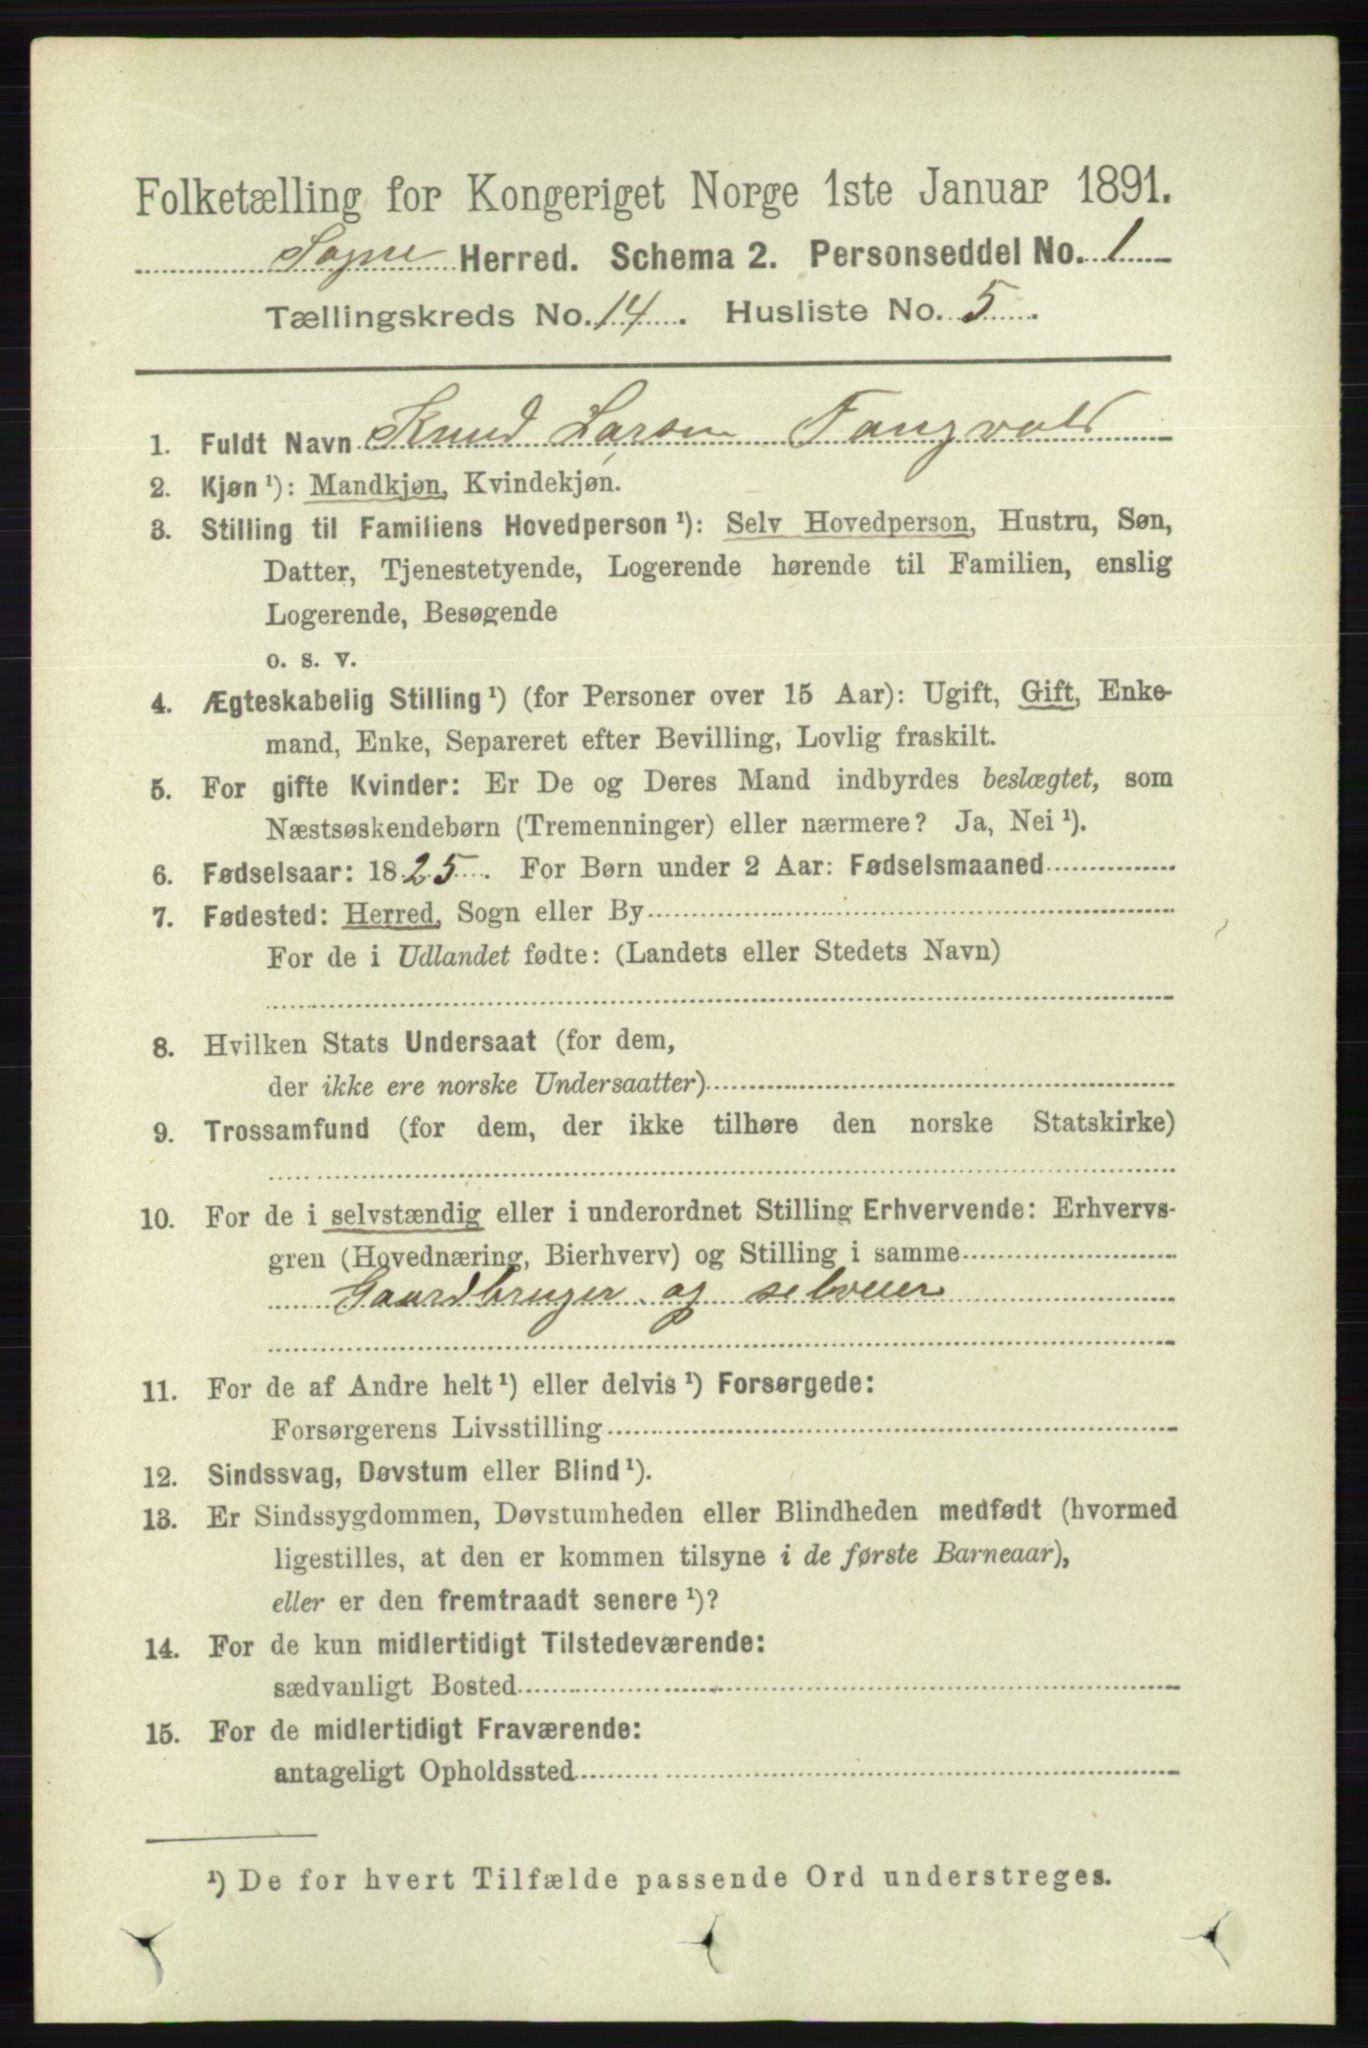 Folketælling for Kongeriget Norge 1ste Januar 1891.
Søgne Herred. Schema 2. Personseddel No. 1
Tællingskreds No. 14. Husliste No. 5.
1. Fuldt Navn Knud Larsen Tangvald
2. Kjøn ¹): Mandkjøn, Kvindekjøn.
3. Stilling til Familiens Hovedperson ¹): Selv Hovedperson, Hustru, Søn,
Datter, Tjenestetyende, Logerende hørende til Familien, enslig
Logerende, Besøgende
o. s. v.
4. Ægteskabelig Stilling ¹) (for Personer over 15 Aar): Ugift, Gift, Enke-
mand, Enke, Separeret efter Bevilling, Lovlig fraskilt.
5. For gifte Kvinder: Er De og Deres Mand indbyrdes beslægtet, som
Næstsøskendebørn (Tremenninger) eller nærmere? Ja, Nei ¹).
6. Fødselsaar: 1825. For Børn under 2 Aar: Fødselsmaaned
7. Fødested: Herred, Sogn eller By
For de i Udlandet fødte: (Landets eller Stedets Navn)
8. Hvilken Stats Undersaat (for dem,
der ikke ere norske Undersaatter)
9. Trossamfund (for dem, der ikke tilhøre den norske Statskirke)
10. For de i selvstændig eller i underordnet Stilling Erhvervende: Erhvervs-
gren (Hovednæring, Bierhverv) og Stilling i samme
Gaardbruger og selveier
11. For de af Andre helt ¹) eller delvis ¹) Forsørgede:
Forsørgerens Livsstilling
12. Sindssvag, Døvstum eller Blind ¹).
13. Er Sindssygdommen, Døvstumheden eller Blindheden medfødt (hvormed
ligestilles, at den er kommen tilsyne i de første Barneaar),
eller er den fremtraadt senere ¹)?
14. For de kun midlertidigt Tilstedeværende:
sædvanligt Bosted
15. For de midlertidigt Fraværende:
antageligt Opholdssted
¹) De for hvert Tilfælde passende Ord understreges.